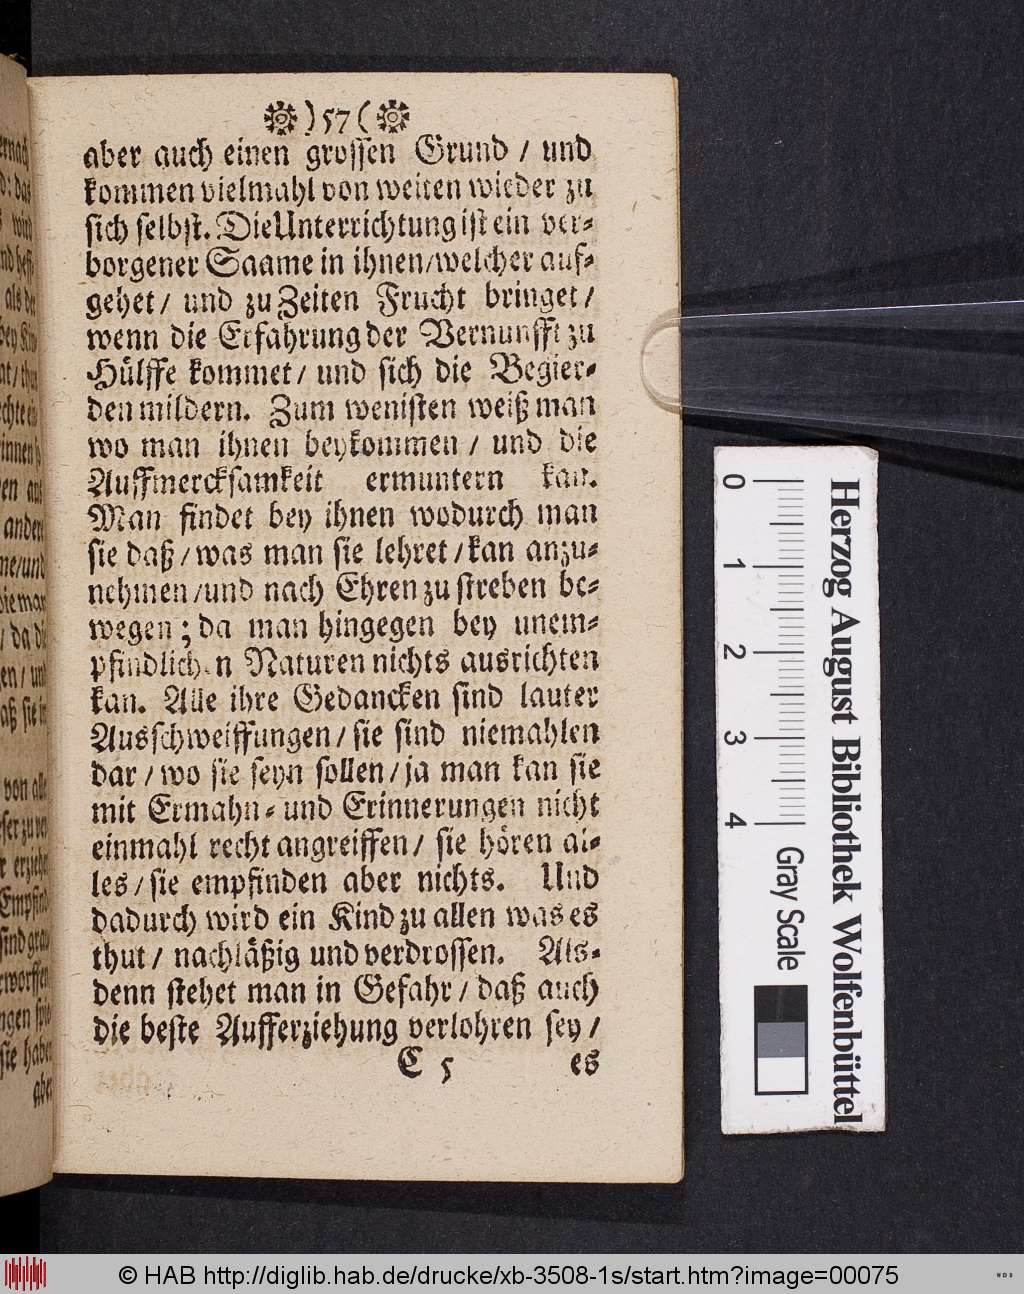 ) 57 (
aber auch einen grossen Grund / und
kommen vielmahl von weiten wieder zu
sich selbst. Die Unterrichtung ist ein ver-
borgener Saame in ihnen / welcher auf-
gehet / und zu Zeiten Frucht bringet /
wenn die Erfahrung der Vernunfft zu
Hülffe kommet / und sich die Begier-
den mildern. Zum wenisten weiß man
wo man ihnen beykommen / und die
Auffmercksamkeit ermuntern kan.
Man findet bey ihnen wodurch man
sie daß / was man sie lehret / kan anzu-
nehmen / und nach Ehren zu streben be-
wegen ; da man hingegen bey unem-
pfindlichen Naturen nichts ausrichten
kan. Alle ihre Gedancken sind lauter
Ausschweiffungen / sie sind niemahlen
dar / wo sie seyn sollen / ja man kan sie
mit Ermahn- und Erinnerungen nicht
einmahl recht angreiffen / sie hören al-
les / sie empfinden aber nichts. Und
dadurch wird ein Kind zu allen was es
thut / nachläßig und verdrossen. Als-
denn stehet man in Gefahr / daß auch
die beste Aufferziehung verlohren sey /
C 5 es
aber
0 1 2 3 4
Gray Scale
Herzog August Bibliothek Wolfenbüttel
© HAB http://diglib.hab.de/drucke/xb-3508-1s/start.htm?image=00075